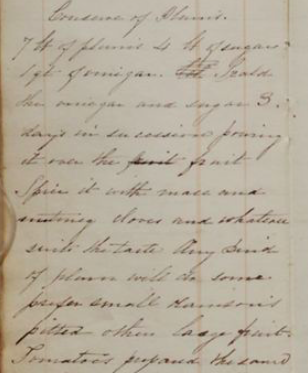 Conserve of Plums.
7 lb of plums 4 lb of sugar
1 qt of vinegar. Scald
the vinegar and sugar 3
days in sucession pouring
it over the fruit fruit
Spice it with mace and
nutmeg cloves and whatever
suits the taste Any kind
of plum will do some
prefer small damsons
pitted other large fruit.
Tomatoes prepared the same